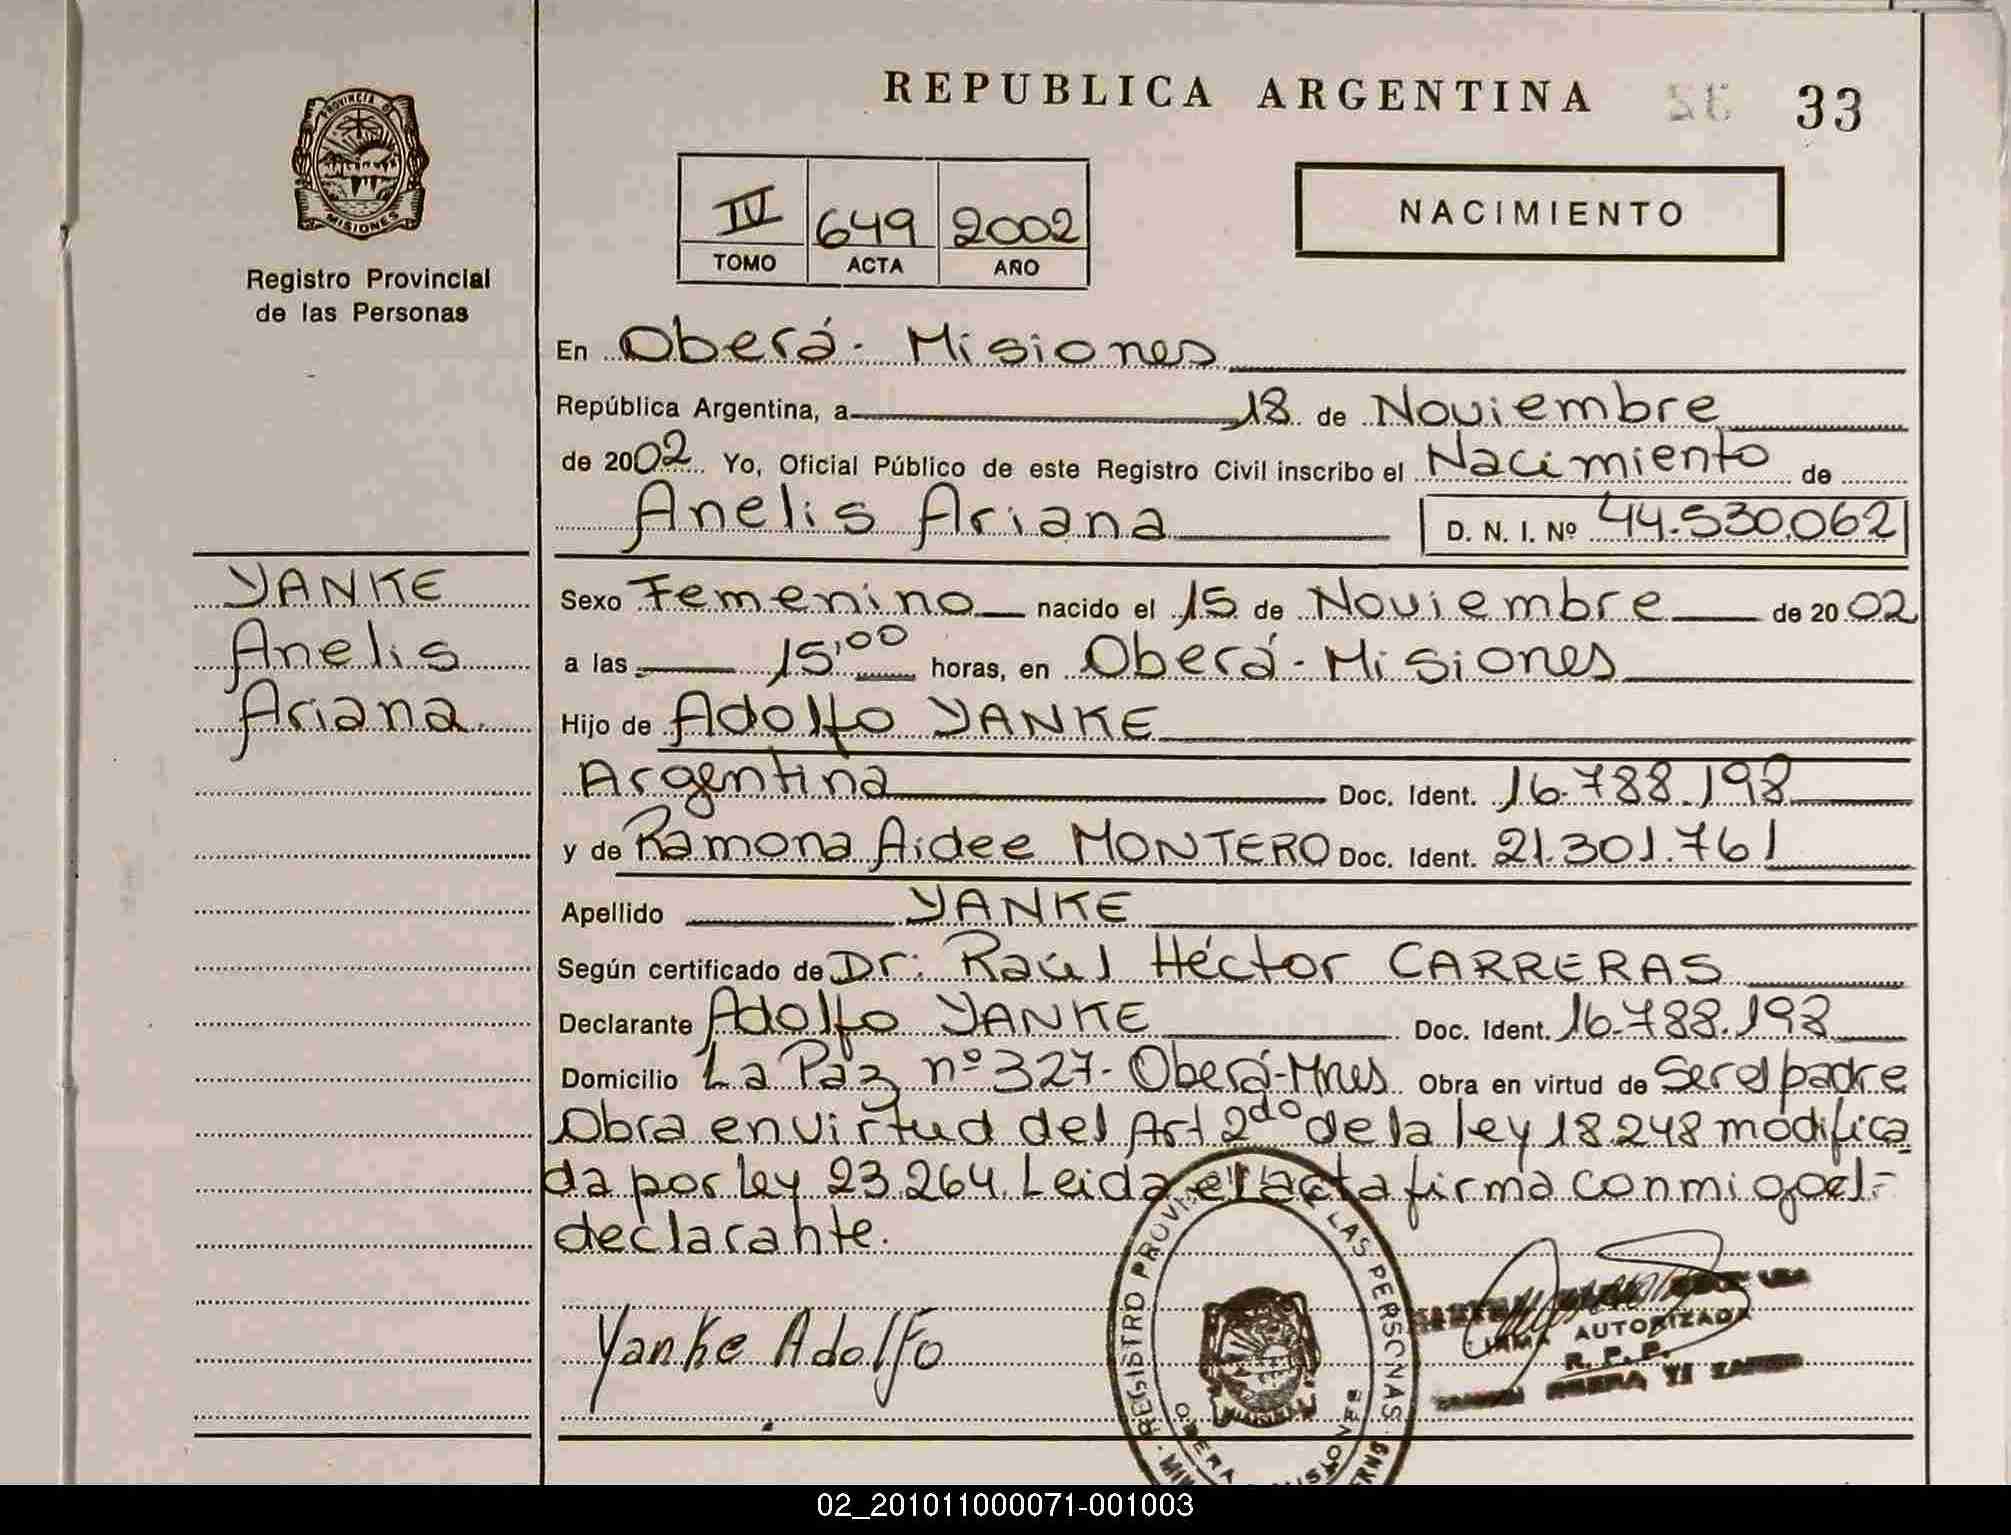 REPUBLICA ARGENTINA 33
PROVINCIA DE
MISIONES
Registro Provincial
de las Personas
IV 649 2002
TOMO ACTA AÑO
NACIMIENTO
En Oberá - Misiones
República Argentina, a 18 de Noviembre
de 2002 Yo, Oficial Público de este Registro Civil inscribo el Nacimiento de
Anelis Ariana D. N. I. Nº 44.530.062
YANKE
Anelis
Ariana.
Sexo Femenino nacido el 15 de Noviembre de 2002
a las 15,00 horas, en Oberá - Misiones
Hijo de Adolfo YANKE
Argentina Doc. Ident. 16.788.198
y de Ramona Aidee MONTERO Doc. Ident. 21.301.761
Apellido YANKE
Según certificado de Dr. Raúl Héctor CARRERAS
Declarante Adolfo YANKE Doc. Ident. 16.788.198
Domicilio La Paz nº 327 - Oberá - Mnes Obra en virtud de Ser el padre
Obra en virtud del Art 2do de la ley 18.248 modifica
da por ley 23.264. Leida el acta firma conmigo el -
declarante.
Yanke Adolfo
REGISTRO PROVINCIAL DE LAS PERSONAS
OBERA MISIONES
FIRMA AUTORIZADA
R. P. P.
02_201011000071-001003